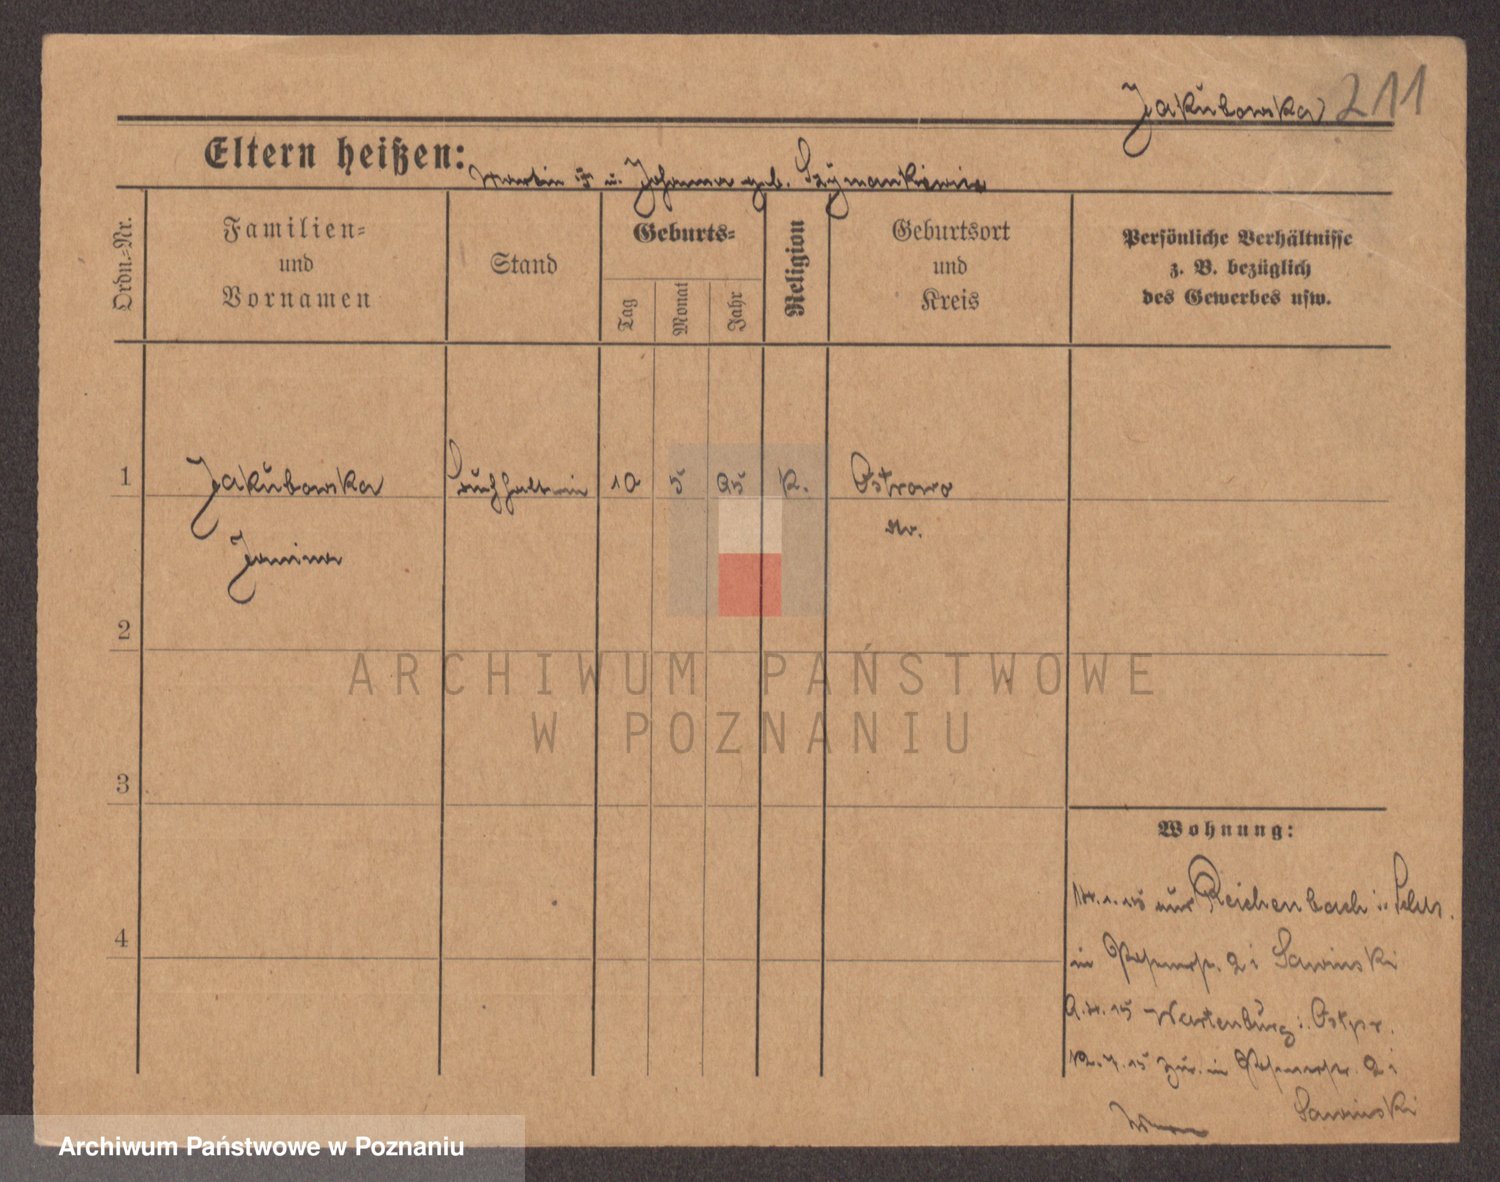 Jakubowska 211
Eltern heißen: Martin u. Johanna geb. Szymankiewicz
Ordn.-Nr.
Familien-
und
Vornamen
Stand
Geburts-
Tag
Monat
Jahr
Religion
Geburtsort
und
Kreis
Persönliche Verhältnisse
z. B. bezüglich
des Gewerbes usw.
1 Jakubowska Buchhalterin 10 5 95 K. Ostrowo
Janina
2
3
4
ARCHIWUM PAŃSTWOWE
W POZNANIU
Wohnung:
aus Reichenbach i. Schles.
in 2 i Sawinski
15 Wartenburg i. Ostpr.
15 zur. in 2 i
Sawinski
Archiwum Państwowe w Poznaniu